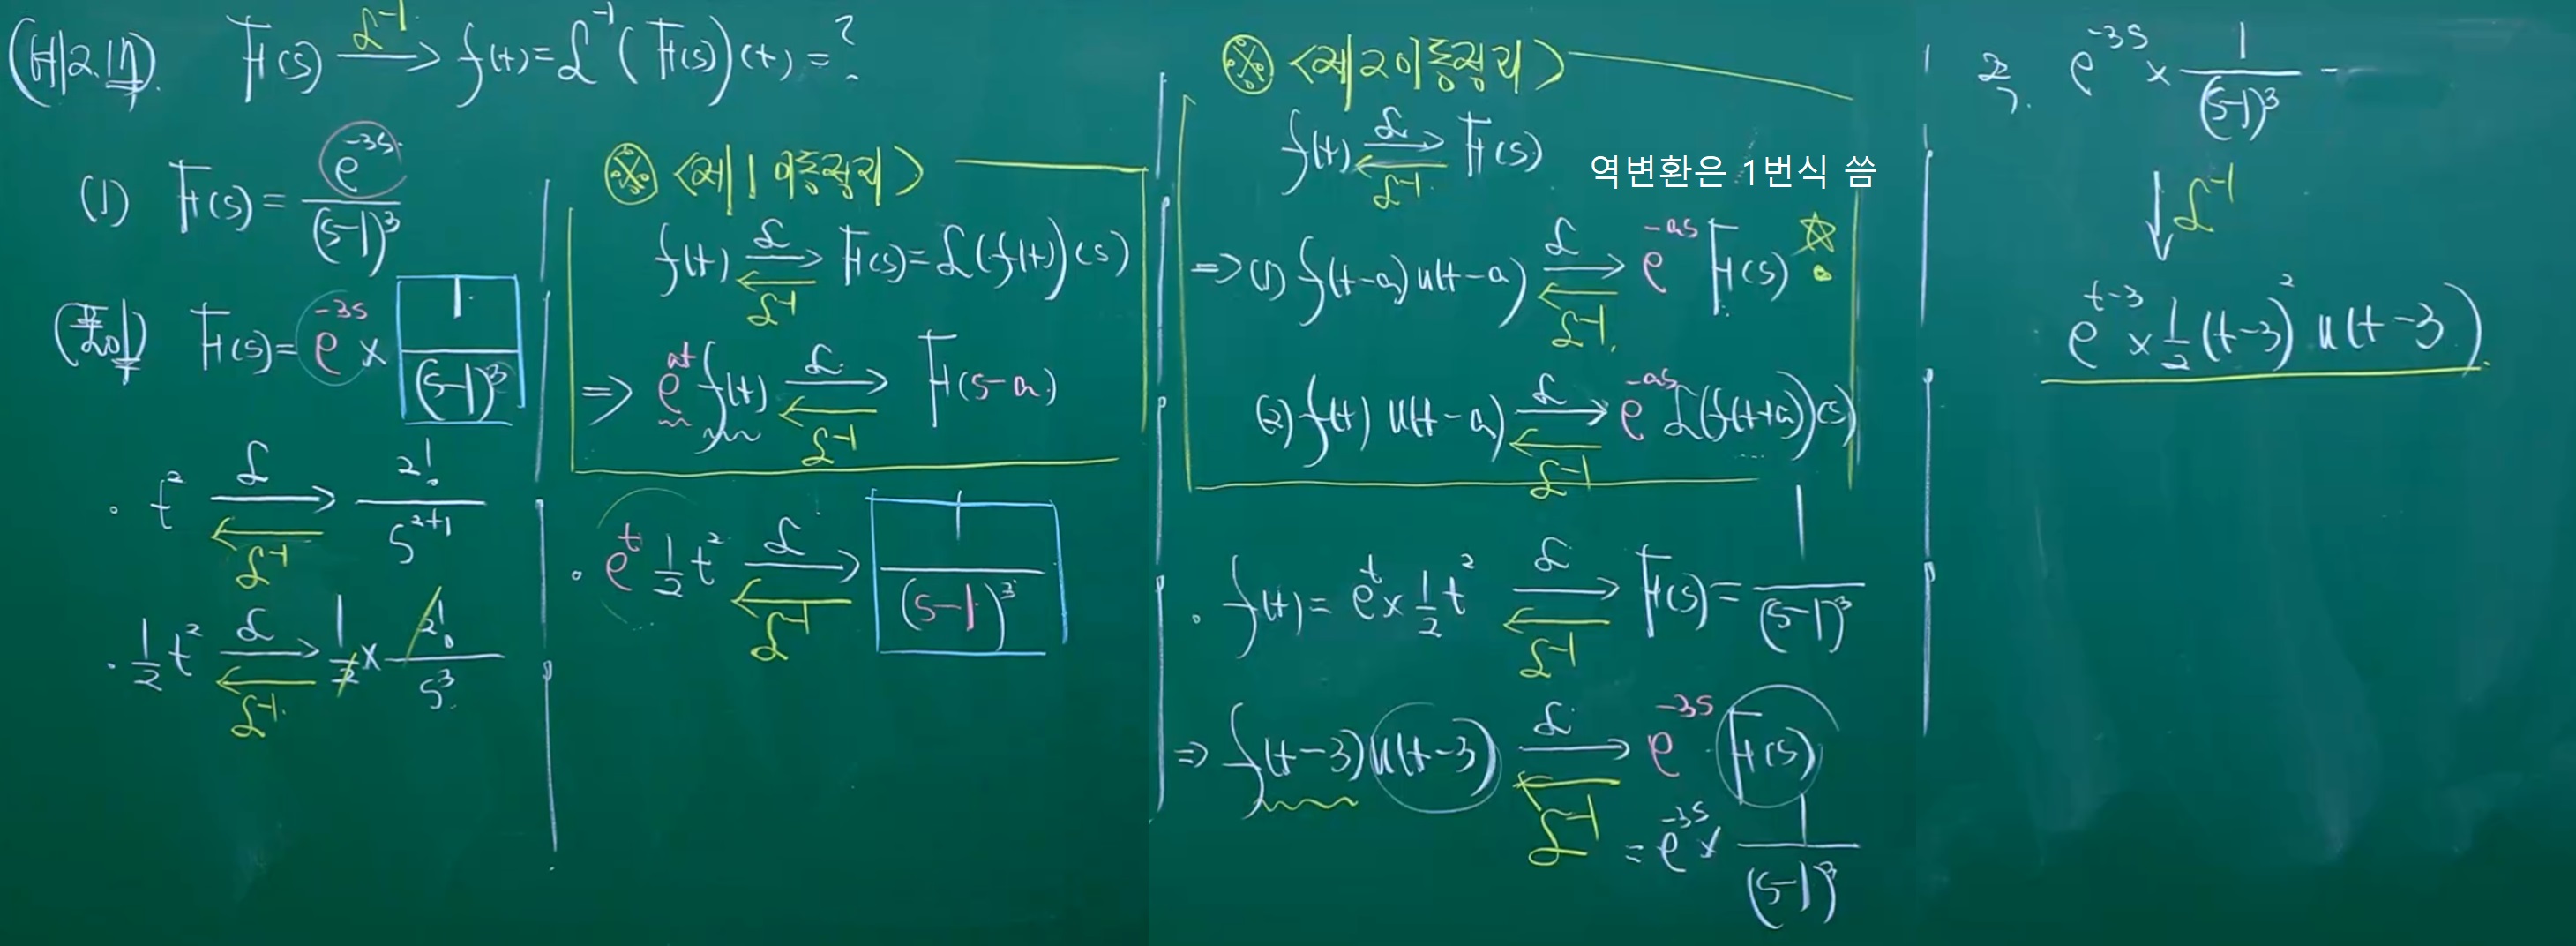 (예2.17) F(s) ℒ⁻¹→ f(t)=ℒ⁻¹(F(s))(t)=?
(1) F(s)= e^{-3s}/(s-1)³
(풀이) F(s)= e^{-3s} × 1/(s-1)³
· t² ℒ→ ←ℒ⁻¹ 2!/s^{2+1}
· 1/2 t² ℒ→ ←ℒ⁻¹ 1/2 × 2!/s³
※ <제1이동정리>
f(t) ℒ→ ←ℒ⁻¹ F(s)=ℒ(f(t))(s)
⇒ e^{at} f(t) ℒ→ ←ℒ⁻¹ F(s-a)
· e^t 1/2 t² ℒ→ ←ℒ⁻¹ 1/(s-1)³
※ <제2이동정리>
f(t) ℒ→ ←ℒ⁻¹ F(s)
역변환은 1번식 씀
⇒ (1) f(t-a)u(t-a) ℒ→ ←ℒ⁻¹ e^{-as} F(s) ☆
(2) f(t) u(t-a) ℒ→ ←ℒ⁻¹ e^{-as} ℒ(f(t+a))(s)
· f(t)= e^t × 1/2 t² ℒ→ ←ℒ⁻¹ F(s)= 1/(s-1)³
⇒ f(t-3)u(t-3) ℒ→ ←ℒ⁻¹ e^{-3s} F(s)
= e^{-3s} × 1/(s-1)³
즉, e^{-3s} × 1/(s-1)³
↓ ℒ⁻¹
e^{t-3} × 1/2 (t-3)² u(t-3)